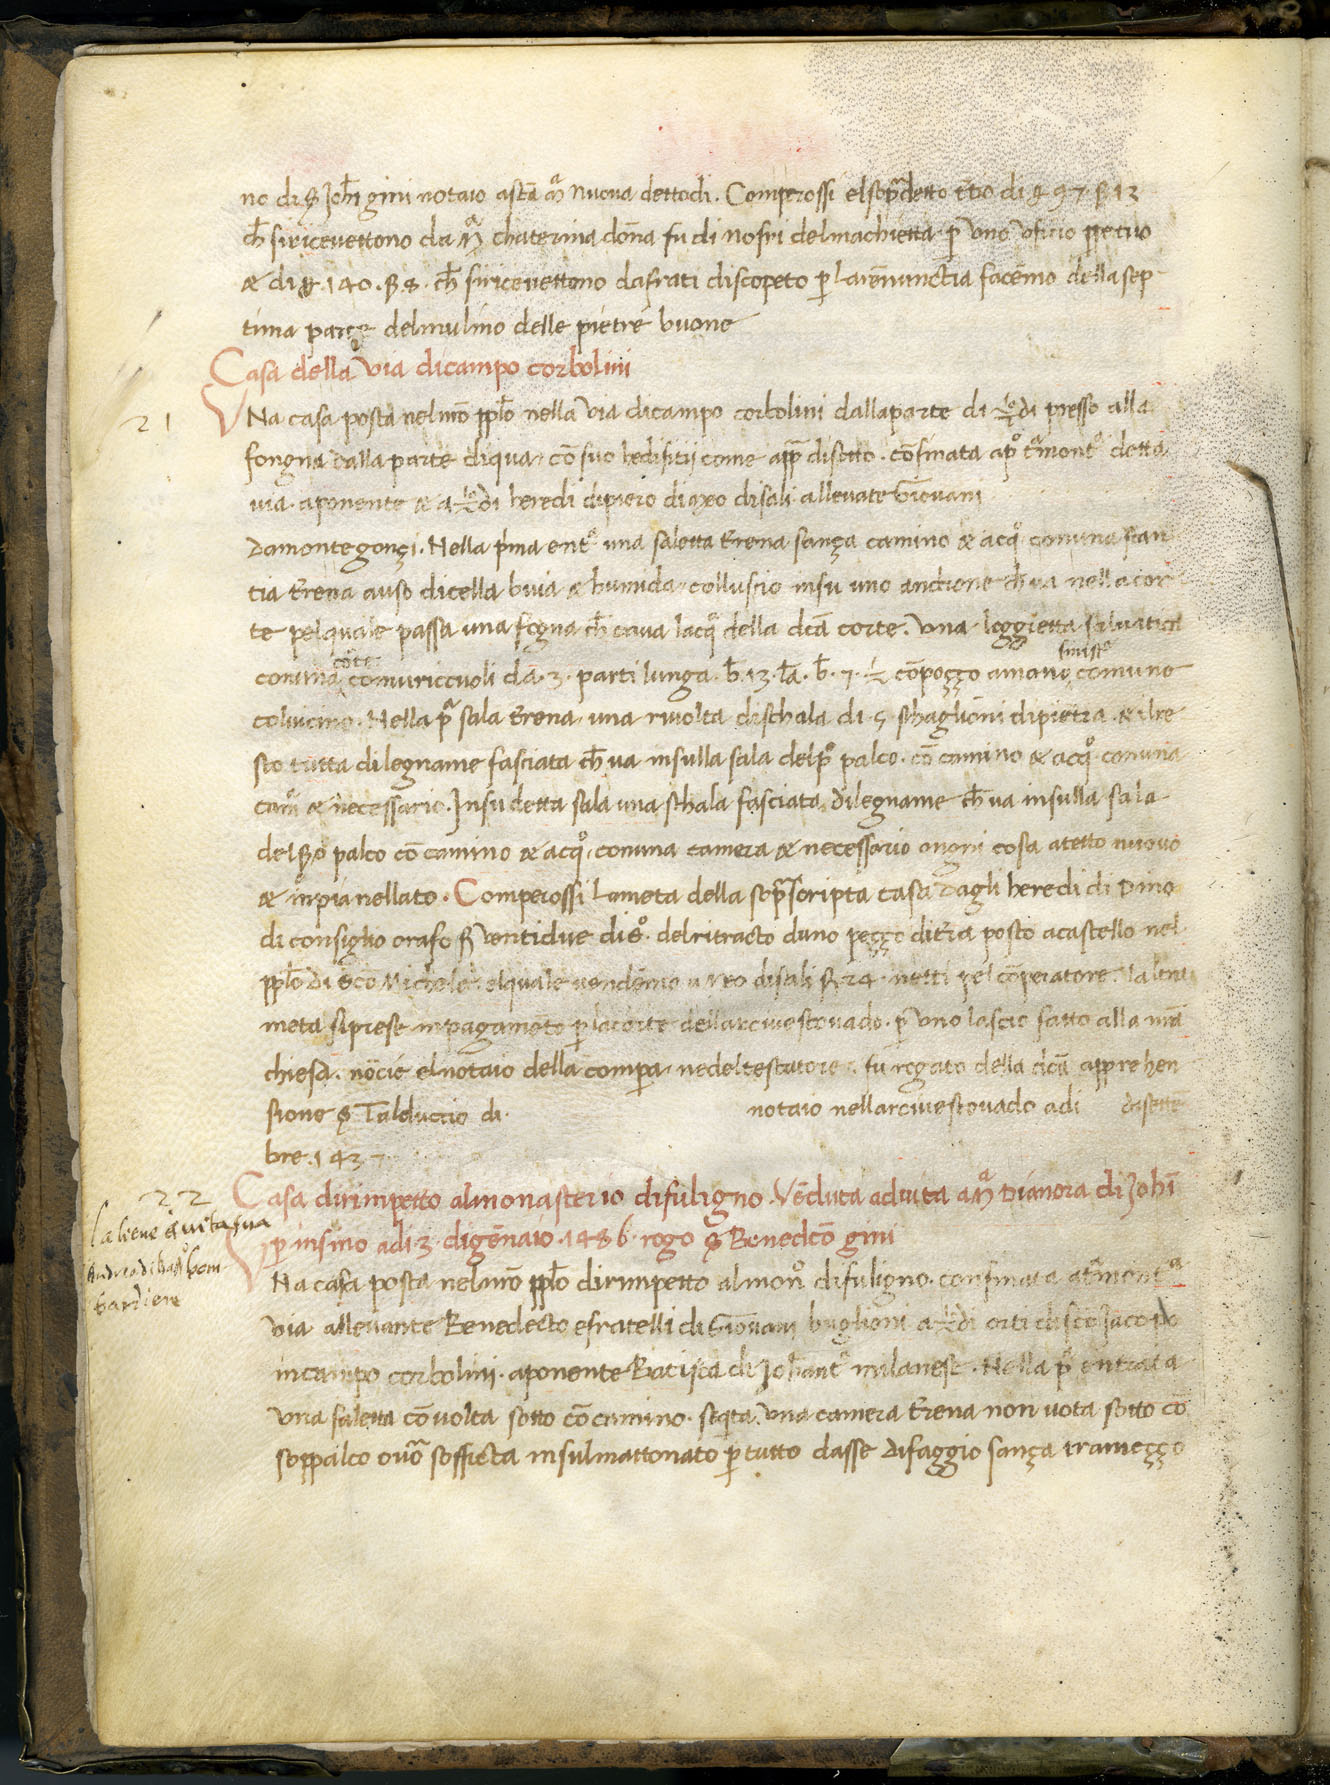 no di s Johi gini notaio asctā mª nuova dettodi. Comperossi elsopradetto
ch̄ siricevettono da Mª chaterina dōna fu di nofri delmachietta p uno oficio ppetuo
& di 140. 8. ch̄ siricevettono dafrati discopeto p̱ larēnunctia facēmo della sep
tima parte delmulino delle pietre buone
Casa della via dicampo corbolini
21
VNa casa posta nelmō pplō nella via dicampo corbolini dallaparte di di presso alla
fongna dalla parte diqua cō suo hedifitii come app̄ disotto. cōfinata apº tªmontº detta
via. aponente & a di heredi dipiero di meo disali allevate Giovani
damontegonçi. Nella pma entª una saletta trena sança camino & acqº comuna stan
tia trena auso dicella buia & humida colluscio insu uno androne ch̄ va nella cor
te pelquale passa una fogna ch̄ cava lacqª della dcā corte. Una loggietta salvatica
corte
smistº
comuna comuriccuoli da 3. parti lunga b. 13. la. b. 7. ½ cōpoçço amano comuno
colvicino. Nella pª sala trena una rivolta dischala di 5 schaglioni dipietra & ilre
sto tutta dilegname fasciata ch̄ va insulla sala delpº palco. cō camino & acqº comuna
camª & necessario. Insu detta sala una schala fasciata dilegname ch̄ va insulla sala
del 2o palco cō camino & acqº, comuna camera & necessario ongni cosa atetto nuovo
& inpianellato. Comperossi lameta della sopªscripta casa dagli heredi di Dino
di consiglio orafo ventidue disº. delritracto duno peçço ditrª posto acastello nel
pplō di sco Michele. elquale vendēmo a Meo disali 24. netti pel cōperatore. laltra
meta siprese inpagamēto p̱ lacorte dellarcivescovado. p uno lascio fatto alla nrā
chiesa. nōcie elnotaio della compera nedeltestatore. fu rogato della dcā apprehen
sione s Talduccio di. notaio nellarcivescovado adi disette
bre. 1437
22
Casa dirimpetto almonasterio difuligno. Vēduta aduita a Mª Dianora di Johi
p̱ insino adi 3. digēnaio. 1486. rogo s Benedcō gini
latiene avita sua
Andrea di bom
bardiere
VNa casa posta nelmō pplō dirimpetto almonº difuligno. confinata atªmontª
via allevante Benedecto efratelli di Giovani buglioni a di orti disco Jacopo
incampo corbolini. aponente Batista di Johantº milanese. Nella pª entrata
una saletta cō volta sotto cō camino. seqta. una camera trena non vota sotto cō
soppalco ovª soffitta insulmattonato p̱ tutto dasse difaggio sança trameçço